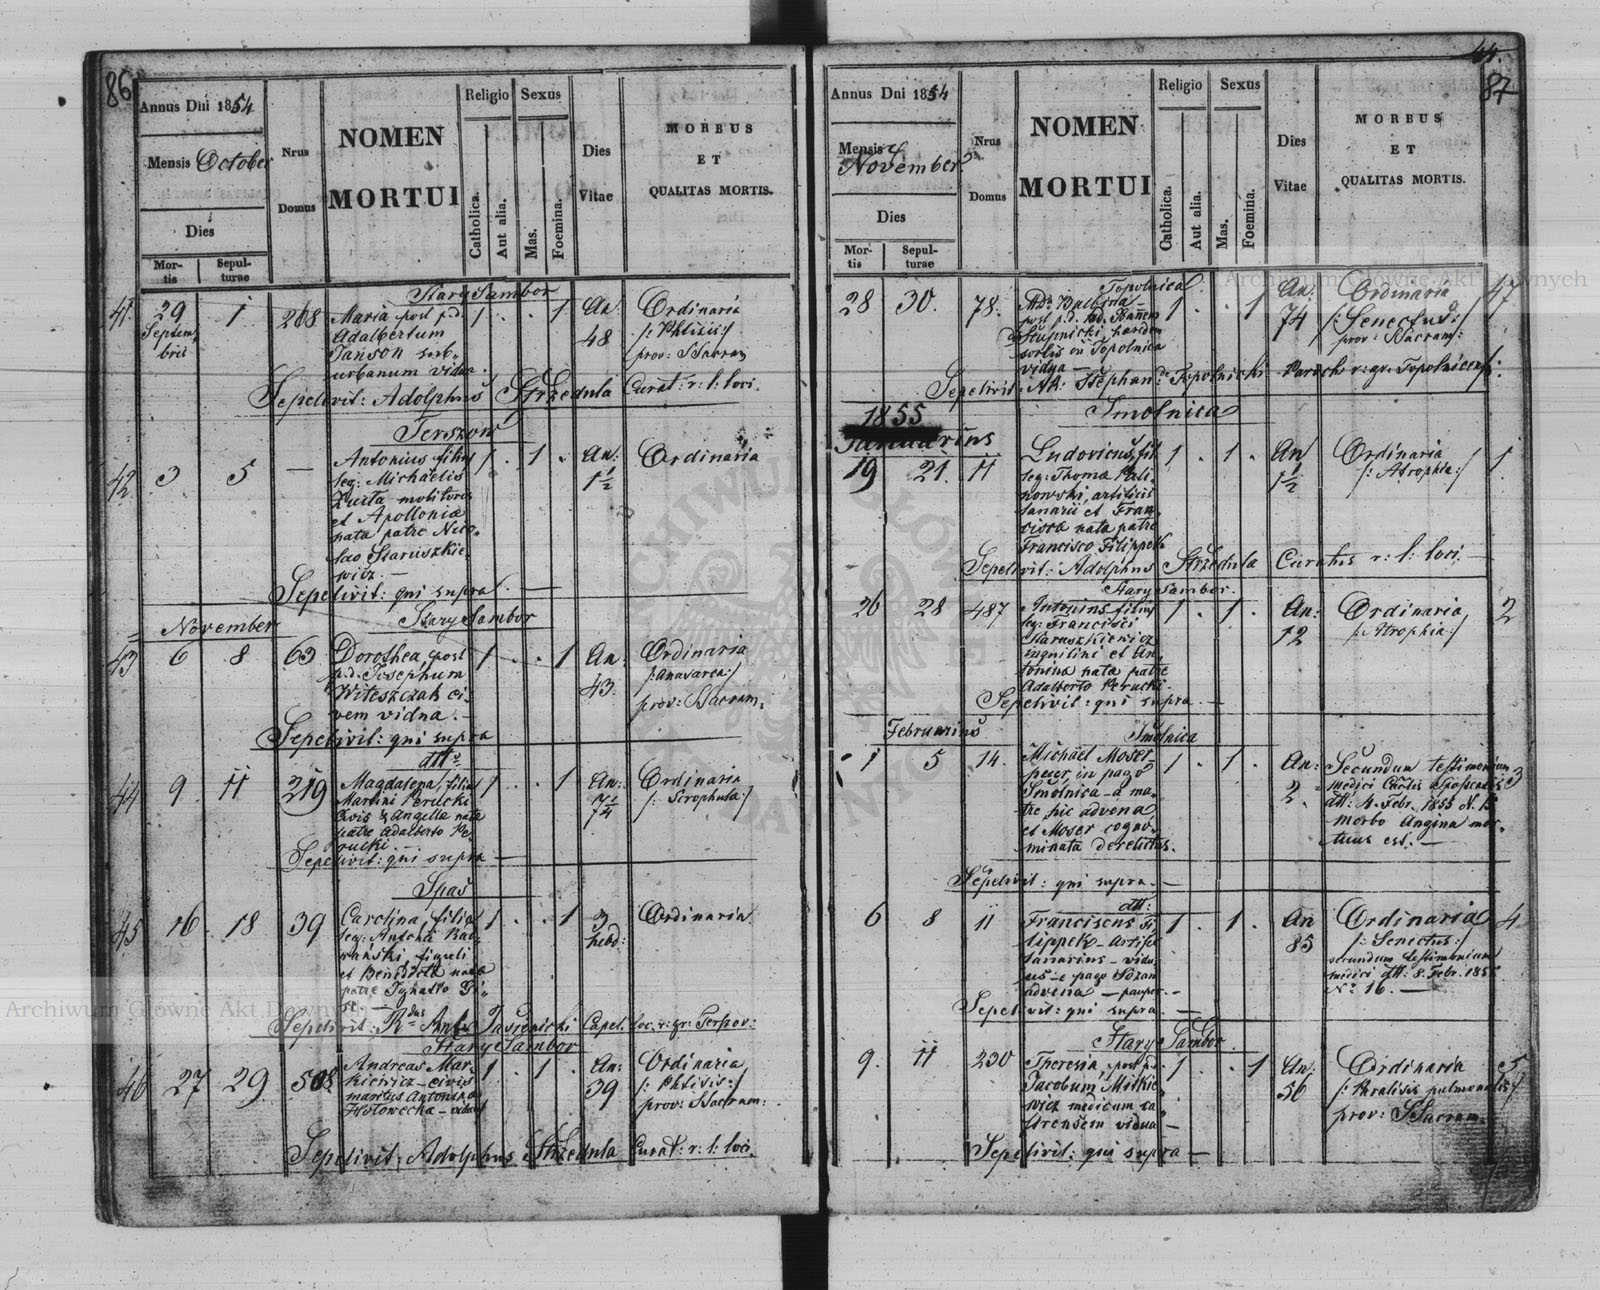 86
Annus Dni 1854
Mensis October
Dies
Mor-
tis
Sepul-
turae
Nrus
Domus
NOMEN
MORTUI
Religio
Catholica.
Aut alia.
Sexus
Mas.
Foemina.
Dies
Vitae
MORBUS
ET
QUALITAS MORTIS.
Stary Sambor
41 29 1 268 Maria post p.d. 1 . . 1 An: Ordinaria
Septem
bris
Adalbertum 48 /: Phtisis:/
Janson sub- prov: SSacram
urbanum vidua.
Sepelivit: Adolphus Strzedula Curat: r: l: loci.
Terszow
42 3 5 — Antonius filius 1 . 1 . An: Ordinaria
leg: Michaelis 1½
mobitoris
et Apollonia
nata patre Nico-
lao Staruszkie-
wicz. —
Sepelivit: qui supra. —
November
Stary Sambor
43 6 8 63 Dorothea, post 1 . . 1 An: Ordinaria
p.d. Josephum 43. /:Anasarca:/
Witeszczak ci- prov: SSacram.
vem vidua. —
Sepelivit: qui supra
dtto
44 9 11 219 Magdalena, filia 1 . . 1 An: Ordinaria
Martini Perucki /: Scrophula:/
civis & Angella nata
patre Adalberto Pe-
rucki. —
Sepelivit: qui supra —
Spas
45 16 18 39 Carolina, filia 1 . . 1 3 Ordinaria
leg: hebd:
figuli
et Benedicta nata
patre Ignatio
Sepelivit: Rdus Ant: Jasienicki Capel. loc. r: gr: Terszov:
Stary Sambor
46 27 29 508 Andreas Mar- 1 . 1 . An: Ordinaria
kiewicz — civis 39 /: Phtisis:/
maritus Antonina prov: SSacram:
Hotowecka — vidua
Sepelivit: Adolphus Strzedula Curat: r: l: loci
44.
87
Annus Dni 1854
Mensis November
Dies
Mor-
tis
Sepul-
turae
Nrus
Domus
NOMEN
MORTUI
Religio
Catholica.
Aut alia.
Sexus
Mas.
Foemina.
Dies
Vitae
MORBUS
ET
QUALITAS MORTIS.
Topolnica
28 30. 78. 1 . . 1 An: Ordinaria 47
post p.d. 74 /: Senectus:/
Stupnicki haeridem prov: SSacram:
sortis in Topolnica
vidua —
Sepelivit: AR: Stephan: de Topolnicki Paroch: r: gr: Topolnicens:
Smolnica
1855
Januarius
19 21. 11 Ludovicus, fil 1 . 1 . An Ordinaria 1.
leg: Thoma Kali- 1½ /: Atrophia:/
nowski, artificis
lanarii et Fran-
cisca nata patre
Francisco Filippek
Sepelivit: Adolphus Strzedula Curatus r: l: loci. —
Stary Sambor.
26 28 487 Antonius filius 1 . 1 . An: Ordinaria 2
leg: Francisci 12 /: Atrophia:/
Staruszkiewicz
inquilini et An-
tonina nata patre
Adalberto Perucki.
Sepelivit: qui supra. —
Februarius
Smolnica
1 5 14. Michael Moser 1 . 1 . An: Secundum testimonium 3
puer in pago 2. medici
Smolnica a ma- dtt: 4. Febr. 1855 N. 15
tre hic advena morbo Angina mor-
et Moser cogno- tuus est. —
minata derelictus.
Sepelivit: qui supra. —
dtt:
6 8 11 Franciscus Fi- 1 . 1 . An Ordinaria 4
lippek — Artifex 85 /: Senectus:/
lanarius — vidu- secundum testimonium
us — e pago medici dtt: 8. Febr. 1855
advena — pauper. — No 16. —
Sepelivit: qui supra. —
Stary Sambor
9. 11 230 Theresia, post p.d. 1 . . 1 An: Ordinaria 5
Jacobum Mitkie- 56 /: Paralisis pulmonalis:/
wicz medicum ca- prov: SSacram.
strensem vidua —
Sepelivit: qui supra —
Archiwum Główne Akt Dawnych
Archiwum Główne Akt Dawnych